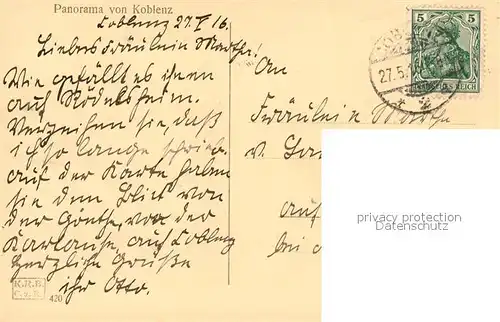 Panorama von Koblenz
Coblenz 27.V.16.
Liebes Fräulein Marthe!
Wie gefällt es ihnen
auf Rödelheim.
Verzeihen sie, daß
ich so lange schrieb.
auf der Karte haben
sie den Blick von
der Goethe, von der
Kartause, auf Coblenz
herzliche Grüße
ihr Otto.
K.R.B.
420
An
Fräulein Marthe
v.
auf
bei
5 5
DEUTSCHES REICH
27.5.16
privacy protection
Datenschutz